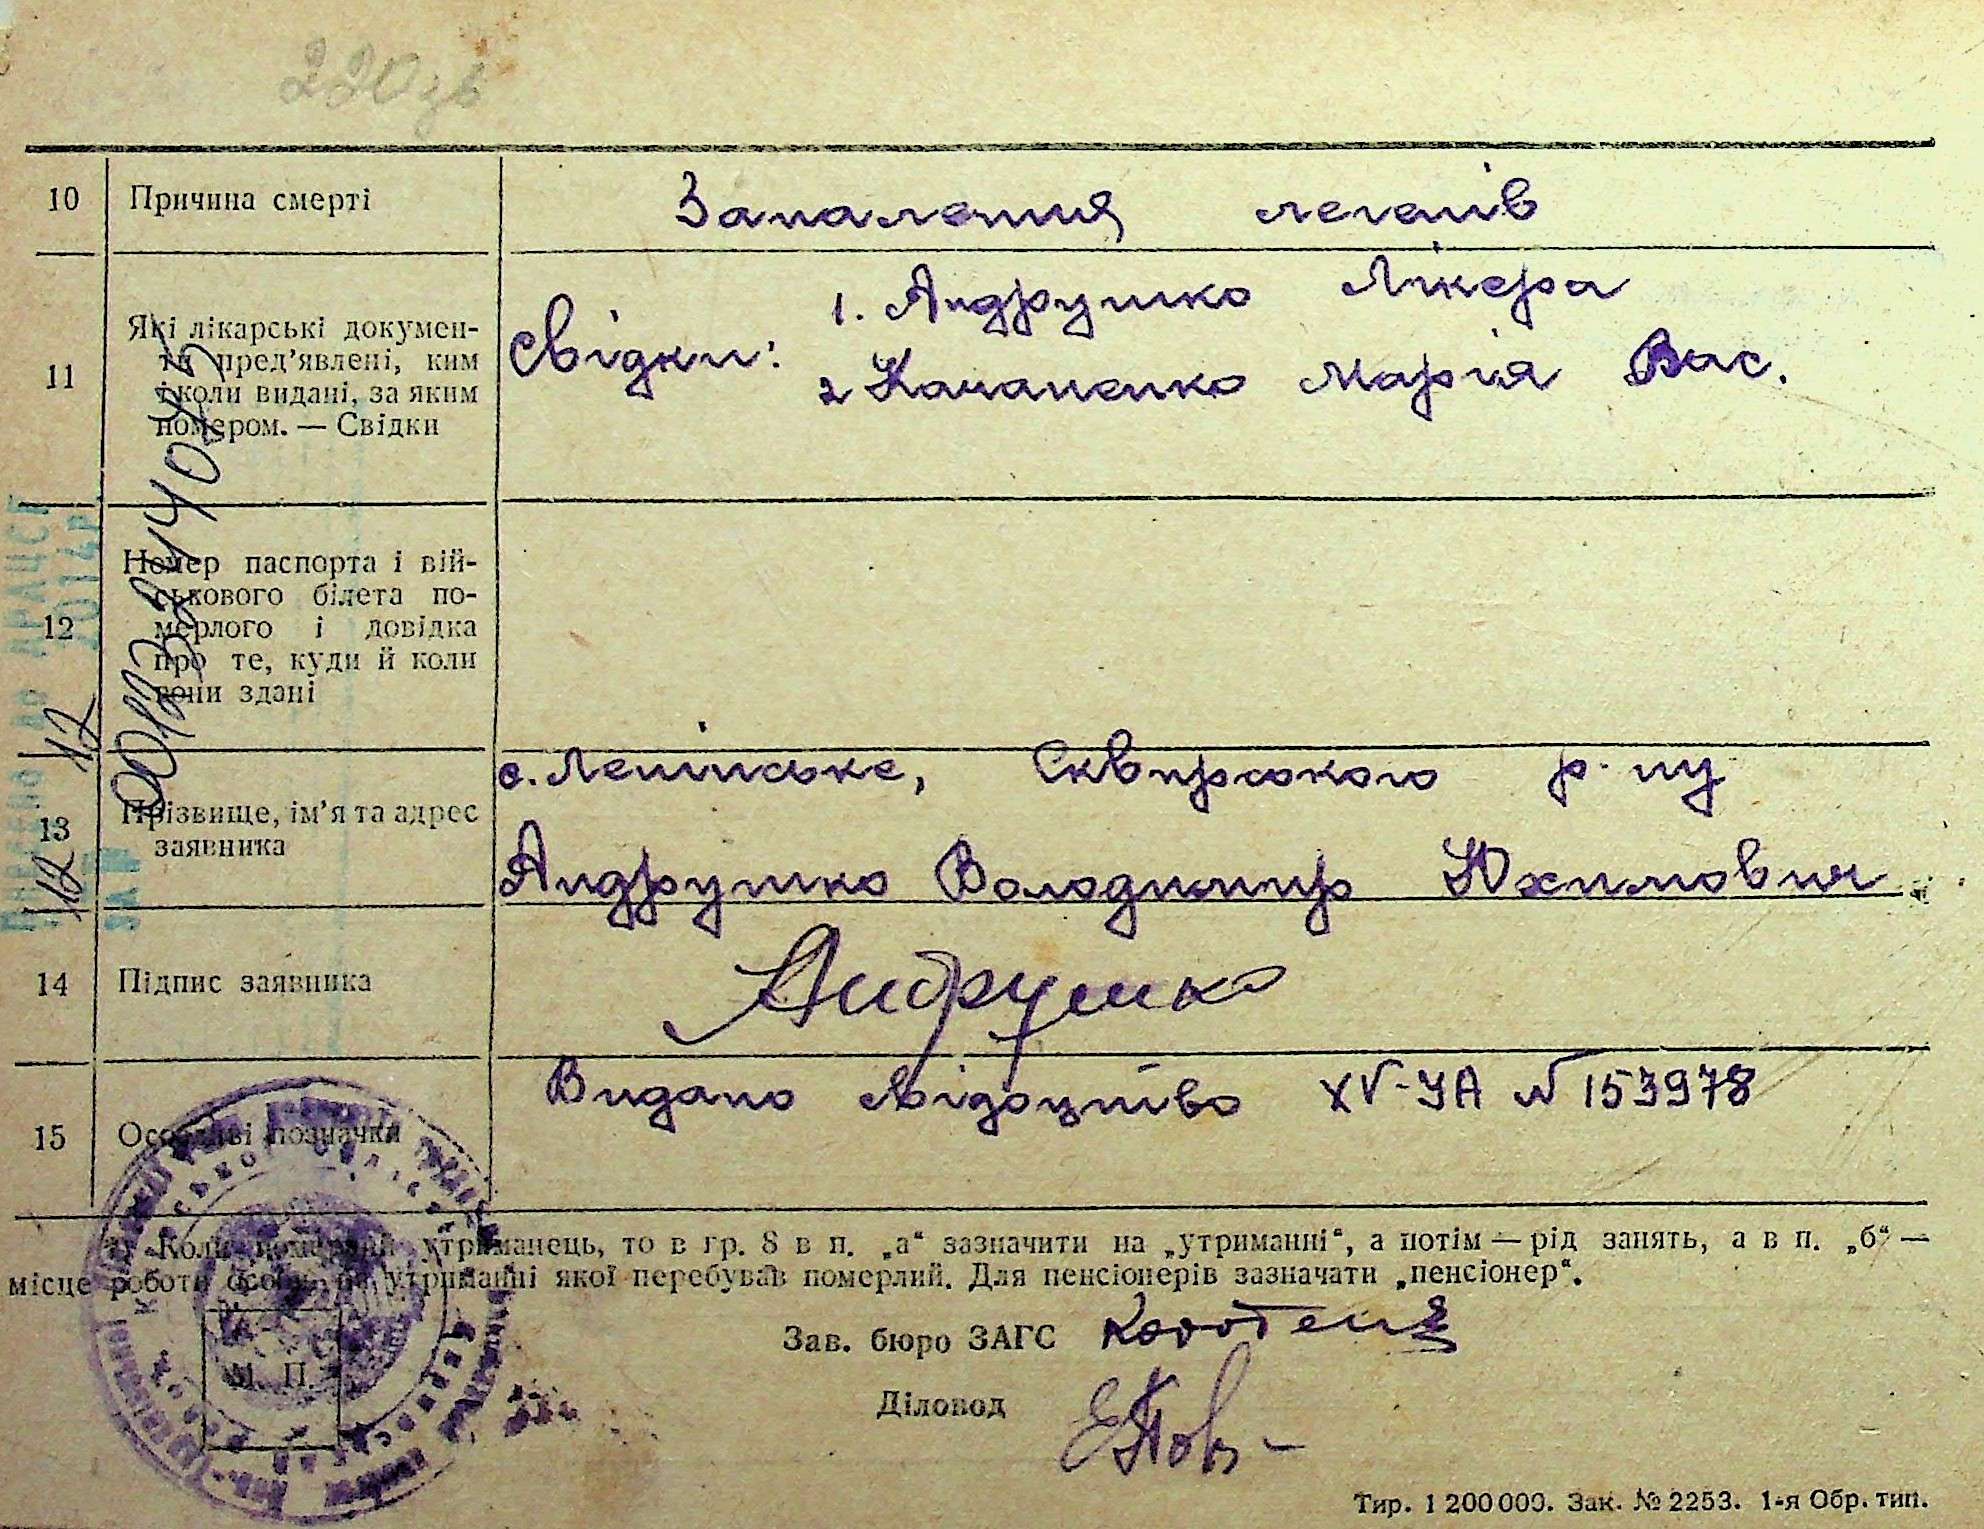 220зв
10 Причина смерті Запалення легенів
11 Які лікарські докумен-
ти пред'явлені, ким
і коли видані, за яким
номером. — Свідки
Свідки: 1. Андрушко Лікера
2 Качаненко Марія Вас.
12 Номер паспорта і вій-
ськового білета по-
мерлого і довідка
про те, куди й коли
вони здані
13 Прізвище, ім'я та адрес
заявника
с. Ленінське, Сквирського р-ну
Андрушко Володимир Юхимович
14 Підпис заявника Андрушко
15 Особливі позначки Видано свідоцтво XV-УА № 153978
*) Коли померлий утриманець, то в гр. 8 в п. „а“ зазначити на „утриманні“, а потім — рід занять, а в п. „б“ —
місце роботи особи, на утриманні якої перебував померлий. Для пенсіонерів зазначати „пенсіонер“.
М. П.
Зав. бюро ЗАГС
Діловод
Тир. 1 200 000. Зак. № 2253. 1-я Обр. тип.